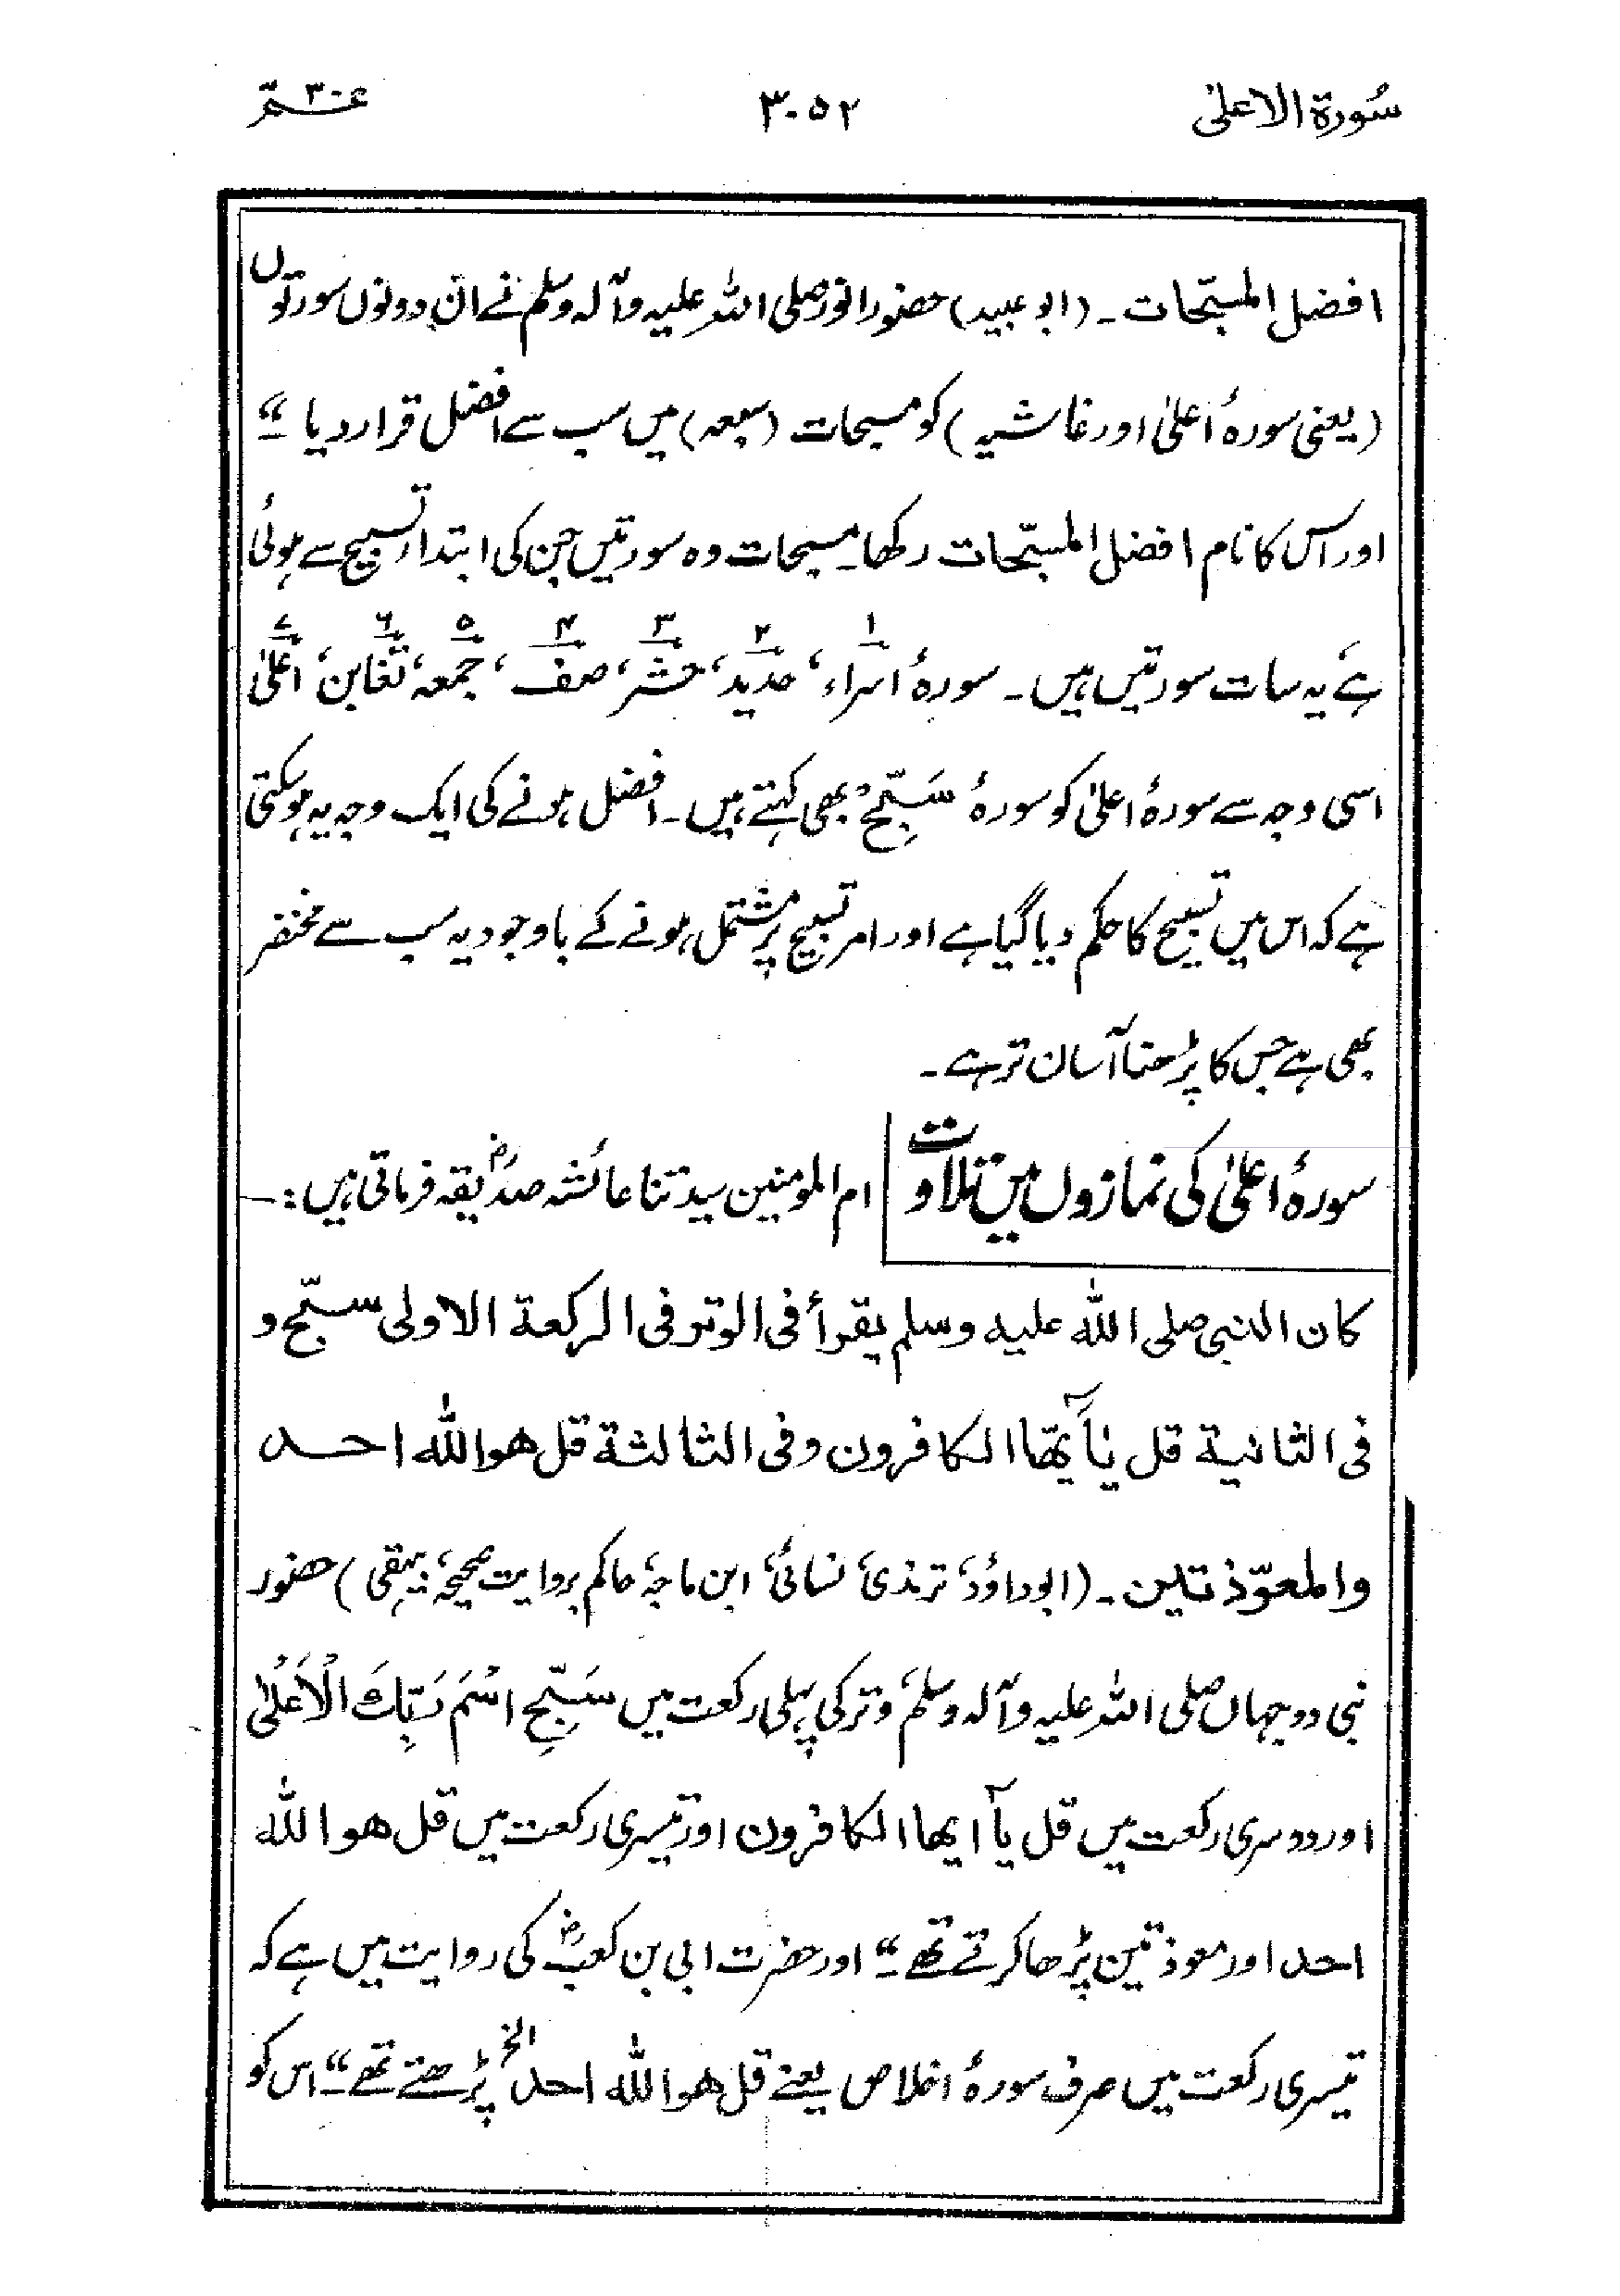 سُورۃ الاعلیٰ ۳۰۵۲ عمّ ۳۰
افضل المسبّحات ۔ (ابو عبید) حضور انور صلی اللہ علیہ وآلہ وسلم نے ان دونوں سورتوں
(یعنی سورۂ اعلیٰ اور غاشیہ) کو مسبحات (سبعہ) میں سب سے افضل قرار دیا ۔“
اور اس کا نام افضل المسبّحات رکھا۔ مسبحات وہ سورتیں جن کی ابتداء تسبیح سے ہوئی
ہے یہ سات سورتیں ہیں ۔ سورۂ اسراء۱، حدید۲، حشر۳، صف۴، جمعہ۵، تغابن۶، اعلیٰ۷
اسی وجہ سے سورۂ اعلیٰ کو سورۂ سَبِّحْ بھی کہتے ہیں ۔ افضل ہونے کی ایک وجہ یہ ہوسکتی
ہے کہ اس میں تسبیح کا حکم دیا گیا ہے اور امر تسبیح پر مشتمل ہونے کے باوجود یہ سب سے مختصر
بھی ہے جس کا پڑھنا آسان تر ہے ۔
سورۂ اعلیٰ کی نمازوں میں تلاوت ام المومنین سیدتنا عائشہ صدیقہؓ فرماتی ہیں :۔
کان النبی صلی اللہ علیہ وسلم یقرأ فی الوتر فی الرکعة الاولی سبّح و
فی الثانیة قل یٰٓاَیّھا الکافرون وفی الثالثة قل ھو اللہ احد
والمعوّذتین ۔ (ابوداؤد، ترمذی، نسائی، ابن ماجہ، حاکم بروایت صحیحہ، بیہقی) حضور
نبی دوجہاں صلی اللہ علیہ وآلہ وسلم، وتر کی پہلی رکعت میں سَبِّحِ اسْمَ رَبِّكَ الْاَعْلٰی
اور دوسری رکعت میں قل یآ ایھا الکافرون اور تیسری رکعت میں قل ھو اللہ
احد اور معوذتین پڑھا کرتے تھے ۔“ اور حضرت ابی بن کعبؓ کی روایت میں ہے کہ
تیسری رکعت میں صرف سورۂ اخلاص یعنے قل ھو اللہ احد الخ پڑھتے تھے ۔“ اس کو